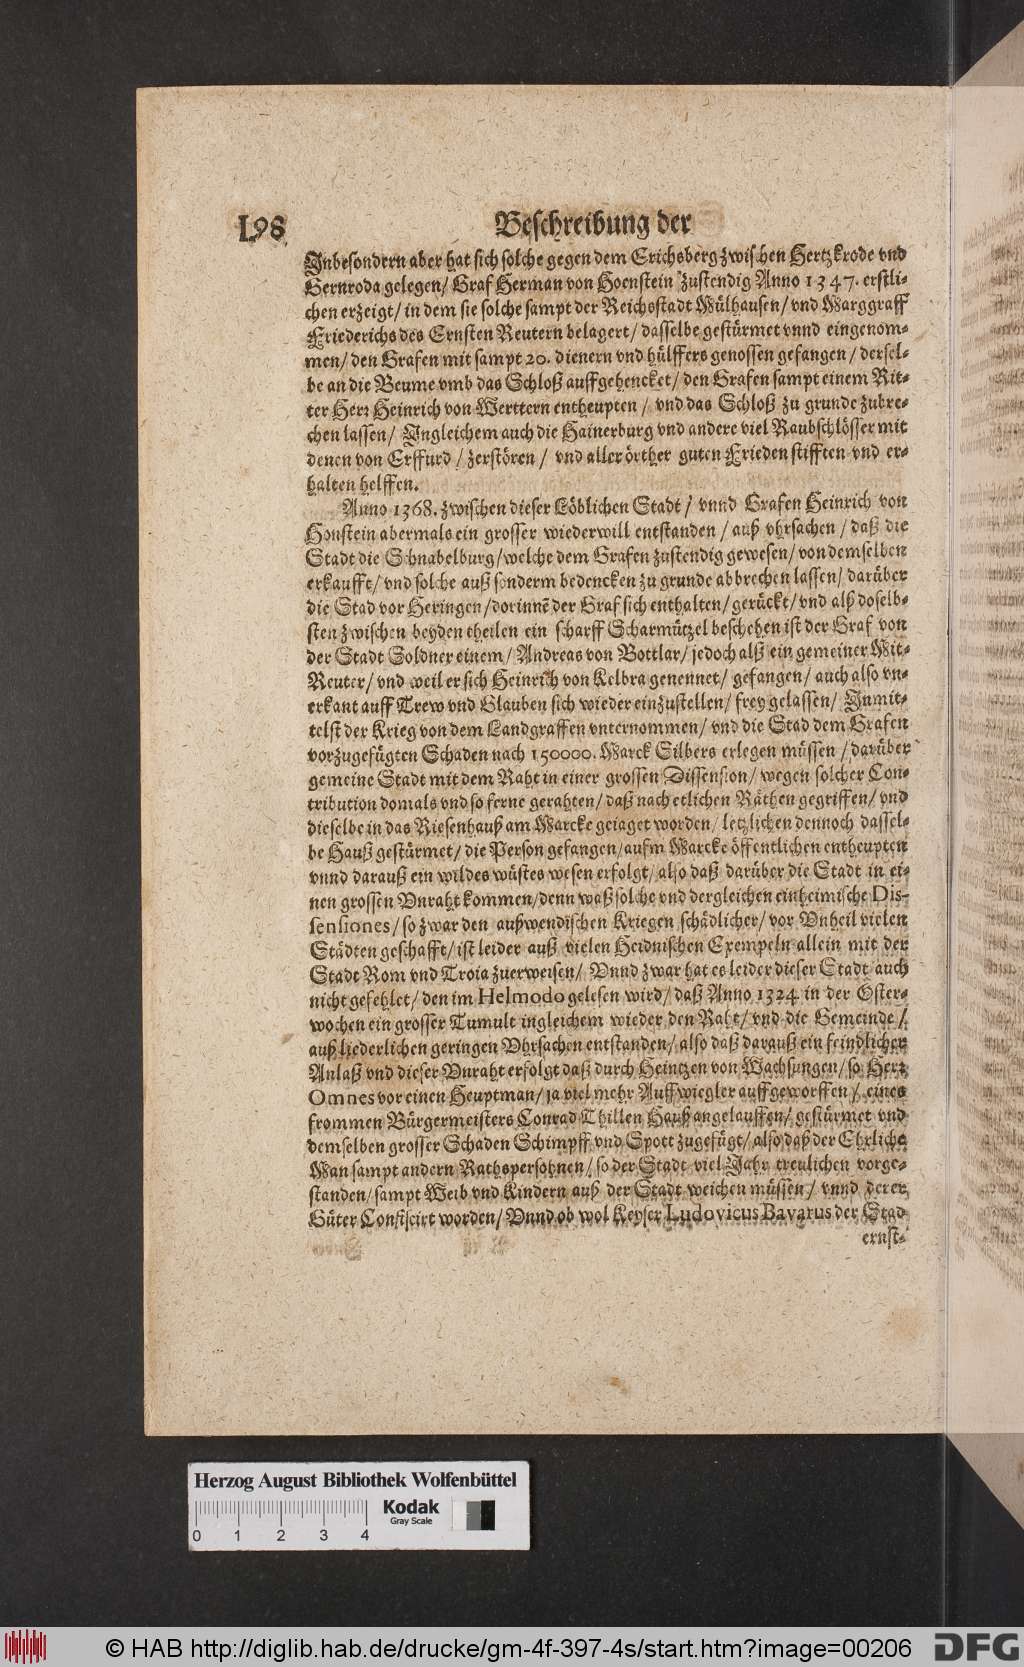 198
Beschreibung der
Inbesondern aber hat sich solche gegen dem Erichsberg zwischen Hertzkrode vnd
Gernroda gelegen/ Graf Herman von Hoenstein zustendig Anno 1347. erstli-
chen erzeigt/ in dem sie solche sampt der Reichsstadt Mülhausen/ vnd Marggraff
Friederichs des Ernsten Reutern belagert/ dasselbe gestürmet vnnd eingenom-
men/ den Grafen mit sampt 20. dienern vnd hülffers genossen gefangen/ dersel-
be an die Beume vmb das Schloß auffgehencket/ den Grafen sampt einem Rit-
ter Herr Heinrich von Werttern entheupten/ vnd das Schloß zu grunde zubre-
chen lassen/ Ingleichem auch die Hainerburg vnd andere viel Raubschlösser mit
denen von Erffurd/ zerstören/ vnd aller örther guten Frieden stifften vnd er-
halten helffen.
Anno 1368. zwischen dieser Löblichen Stadt/ vnnd Grafen Heinrich von
Honstein abermals ein grosser wiederwill entstanden/ auß vhrsachen/ daß die
Stadt die Schnabelburg/ welche dem Grafen zustendig gewesen/ von demselben
erkaufft/ vnd solche auß sonderm bedencken zu grunde abbrechen lassen/ darüber
die Stad vor Heringen/ dorinnē der Graf sich enthalten/ gerückt/ vnd alß doselb-
sten zwischen beyden theilen ein scharff Scharmützel beschehen ist der Graf von
der Stadt Soldner einem/ Andreas von Bottlar/ jedoch alß ein gemeiner Mit-
Reuter/ vnd weil er sich Heinrich von Kelbra genennet/ gefangen/ auch also vn-
erkant auff Trew vnd Glauben sich wieder einzustellen/ frey gelassen/ Inmit-
telst der Krieg von dem Landgraffen vnternommen/ vnd die Stad dem Grafen
vorzugefügten Schaden nach 150000. Marck Silbers erlegen müssen/ darüber
gemeine Stadt mit dem Raht in einer grossen Dissension/ wegen solcher Con-
tribution domals vnd so ferne gerahten/ daß nach etlichen Räthen gegriffen/ vnd
dieselbe in das Riesenhauß am Marcke geiaget worden/ letzlichen dennoch dassel-
be Hauß gestürmet/ die Person gefangen/ aufm Marcke öffentlichen entheupten
vnnd darauß ein wildes wüstes wesen erfolgt/ also daß darüber die Stadt in ei-
nen grossen Vnraht kommen/ denn waß solche vnd dergleichen einheimische Dis-
sensiones/ so zwar den außwendischen Kriegen schädlicher/ vor Vnheil vielen
Städten geschafft/ ist leider auß vielen Heidnischen Exempeln allein mit der
Stadt Rom vnd Troia zuerweisen/ Vnnd zwar hat es leider dieser Stadt auch
nicht gefehlet/ den im Helmodo gelesen wird/ daß Anno 1324 in der Oster-
wochen ein grosser Tumult ingleichem wieder den Raht/ vnd die Gemeinde/
auß liederlichen geringen Vhrsachen entstanden/ also daß darauß ein feindlicher
Anlaß vnd dieser Vnraht erfolgt daß durch Heintzen von Wachsungen/ so Herr
Omnes vor einen Heuptman/ ja viel mehr Auffwiegler auffgeworffen/ eines
frommen Bürgermeisters Conrad Thillen Hauß angelauffen/ gestürmet vnd
demselben grosser Schaden Schimpff vnd Spott zugefügt/ also daß der Ehrliche
Man sampt andern Rathspersohnen/ so der Stadt viel Jahr treulichen vorge-
standen/ sampt Weib vnd Kindern auß der Stadt weichen müssen/ vnnd derer
Güter Confiscirt worden/ Vnnd ob wol Keyser Ludovicus Bavarus der Stad
ernst-
Herzog August Bibliothek Wolfenbüttel
0 1 2 3 4
Kodak
Gray Scale
© HAB http://diglib.hab.de/drucke/gm-4f-397-4s/start.htm?image=00206
DFG